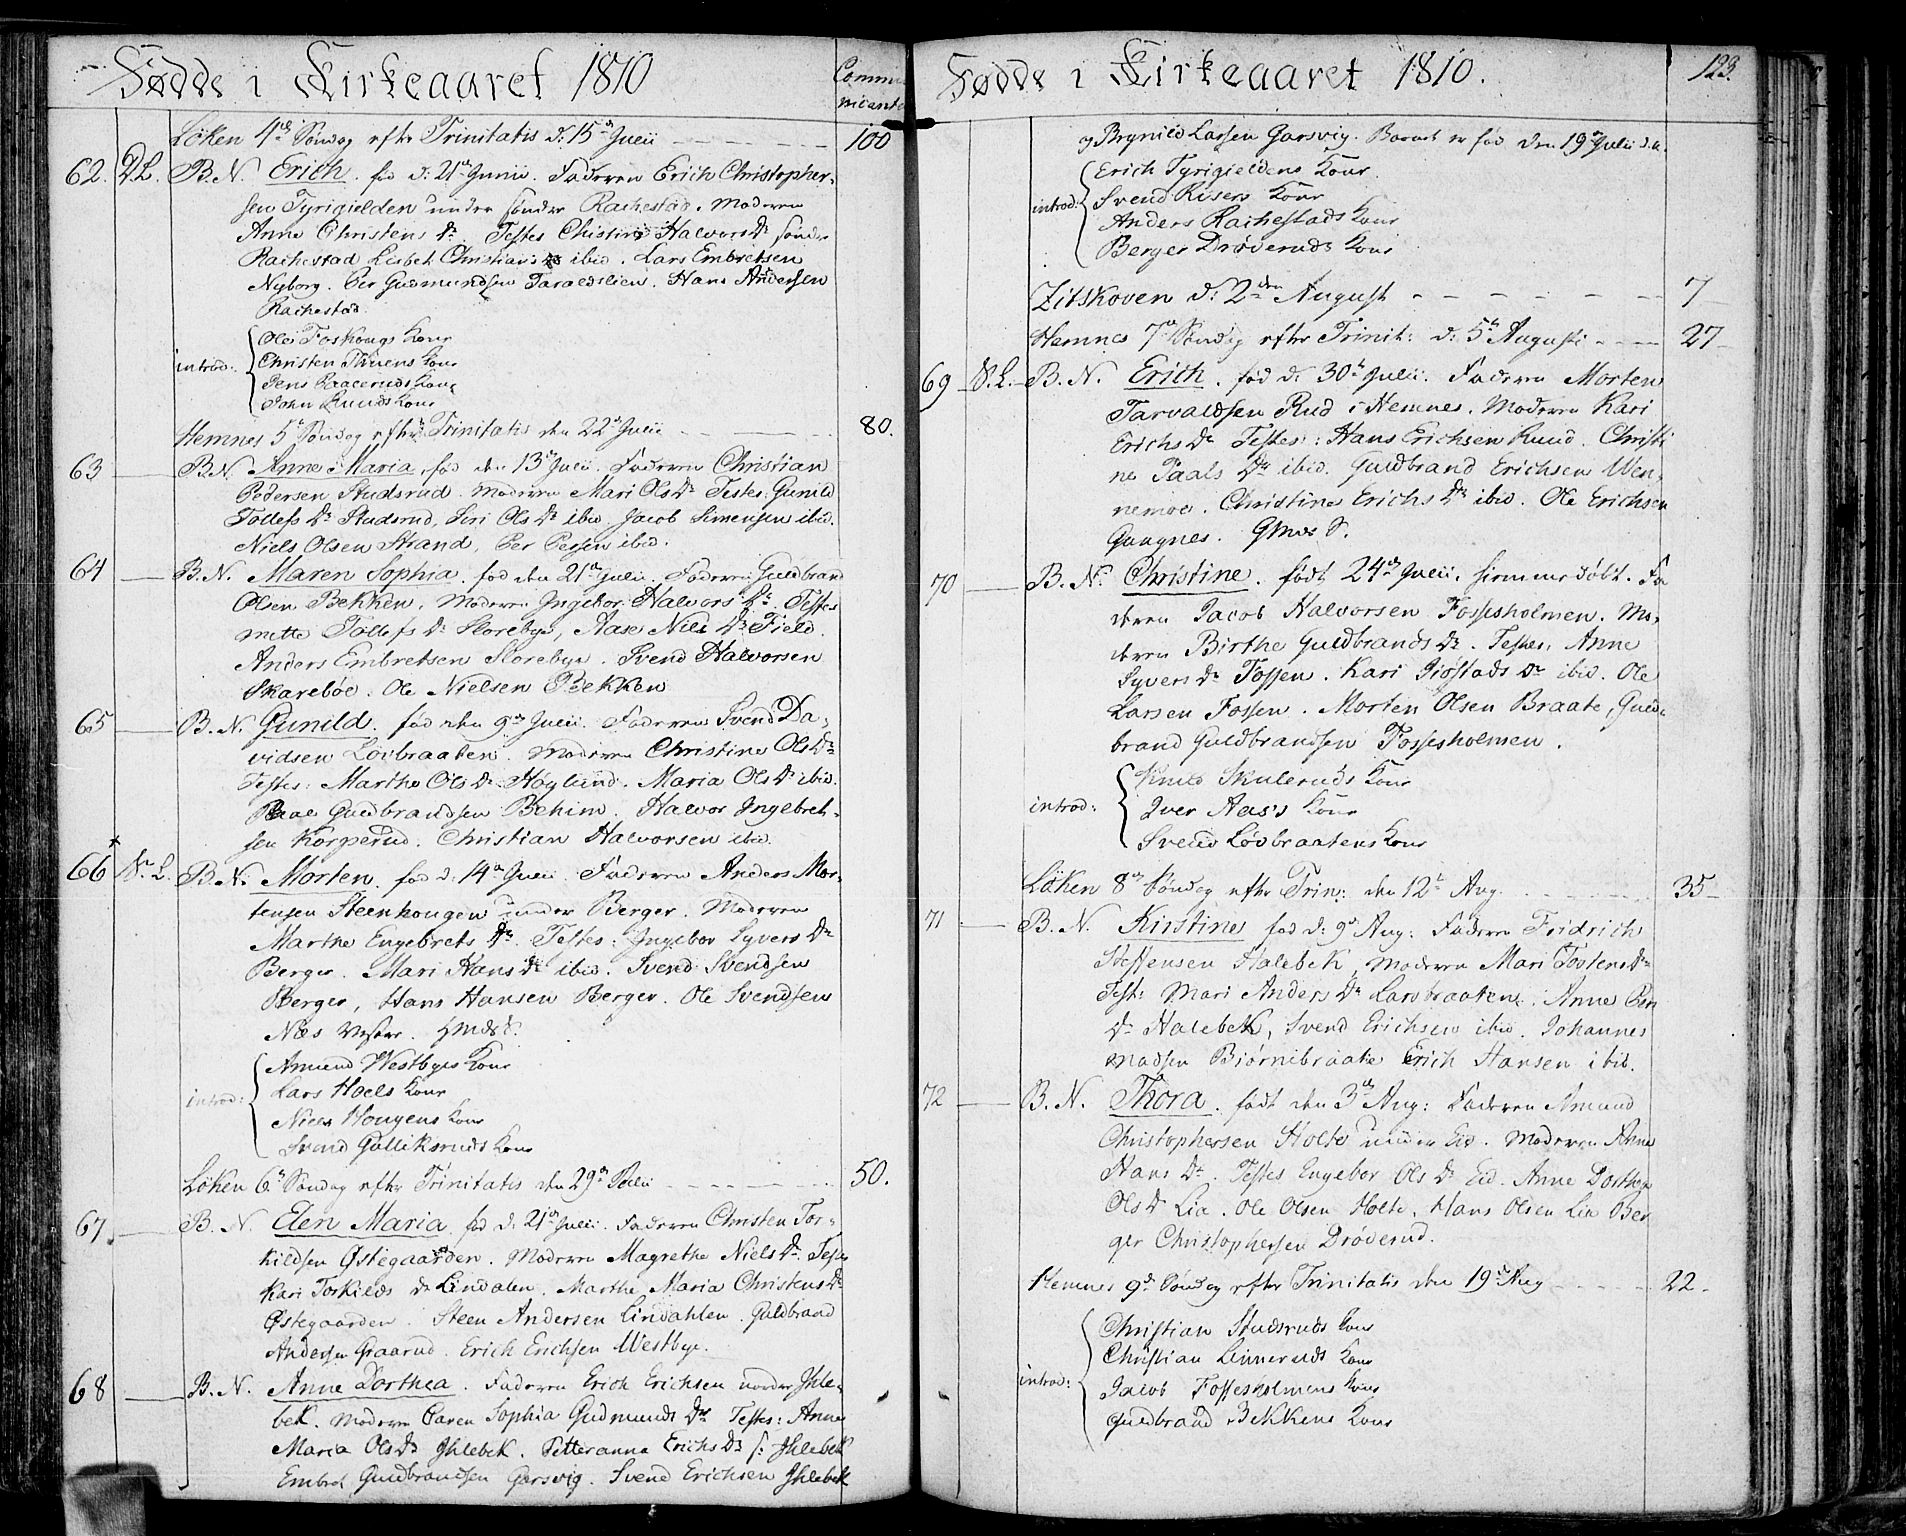 Fødde i Kirkeaaret 1810
Communicanter
Løken 4de Søndag efter Trinitatis d: 15de Julii 100
62. D.L. B.N. Erich. fød d: 21de Junii. Faderen Erich Christopher-
sen Tyrigielden under sønder Rachestad. Moderen
Anne Christens Dr. Testes Christine Halvors Dr sønder
Rachestad Lisbet Christians Dr ibid. Lars Embretsen
Nyborg. Per Gudmundsen Taraldslien. Hans Andersen
Rachestad.
introd:
Ole Foshougs Kone
Christen Tauens Kone
Jens Raaeruds Kone
John Lunds Kone
Hemnes 5te Søndag efter Trinitatis den 22de Julii 80.
63 B.N. Anne Maria, fød den 13de Julii. Faderen Christian
Pedersen Studsrud. Moderen Mari Ols Dr Testes: Gunild
Tollefs Dr Studsrud, Siri Ols Dr ibid Jacob Simensen ibid.
Niels Olsen Strand, Per Persen ibid.
64 B.N. Maren Sophia. fød den 21de Julii. Faderen Guldbrand
Olsen Bekken. Moderen Ingebor Halvors Dr. Testes
Mette Tollefs Dr Slorebye, Aase Niels Dr Field.
Anders Embretsen Slorebye. Svend Halvorsen
Skareböe. Ole Nielsen Bekken
65 B.N. Gunild. fød den 9de Julii. Faderen Svend Da-
vidsen Lövbraaten. Moderen Christine Ols Dr
Testes: Marthe Ols Dr Høglund. Maria Ols Dr ibid.
Paal Guldbrandsen Behim. Halvor Ingebret-
sen Korperud. Christian Halvorsen ibid.
66 N.L. B.N. Morten. fød d: 14de Julii. Faderen Anders Mor-
tensen Steenhougen under Berger. Moderen
Marthe Engebrets Dr. Testes: Ingebor Syvers Dr
Berger. Mari Hans Dr ibid. Svend Svendsen
Berger, Hans Hansen Berger. Ole Svendsen
Næs
introd:
Amund Westbyes Kone
Lars Hoels Kone
Niels Hougens Kone
Svend Gulliksruds Kone
Løken 6te Søndag efter Trinitatis den 29de Julii 50.
67 B.N. Elen Maria. fød d: 21de Julii. Faderen Christen Tor-
kildsen Østegaarden. Moderen Magrethe Niels Dr. Testes
Kari Torkilds Dr Lindalen. Marthe Maria Christens Dr
Østegaarden. Steen Andersen Lindahlen. Guldbrand
Andersen Graarud. Erich Erichsen Westbye.
68 B.N. Anne Dorthea. Faderen Erich Erichsen nordre Ihle-
bek. Moderen Caren Sophia Gudmunds Dr Testes: Anne
Maria Ols Dr Ihlebek. Petteranna Erichs Dr s: Ihlebek
Embret Guldbrandsen Garsvig. Svend Erichsen Ihlebek
Fødde i Kirkeaaret 1810.
123.
og Brynild Larsen Garsvig. Barnet er fød den 19de Julii d.a.
introd:
Erich Tyrigieldens Kone
Svend Risers Kone
Anders Rachestads Kone
Berger Drøderuds Kone
Zitskoven d: 2den August 7
Hemnes 7de Søndag efter Trinit: d: 5te Augusti 27
69 N.L. B.N. Erich. fød d: 30te Julii. Faderen Morten
Tarvaldsen Rud i Hemnes. Moderen Kari
Erichs Dr Testes: Hans Erichsen Ruud. Christi
ne Paals Dr ibid. Guldbrand Erichsen Wen-
nemoe. Christine Erichs Dr ibid. Ole Erichsen
Gaagnes.
70 B.N. Christine. født 24de Julii. hiemmedøbt. Fa
deren Jacob Halvorsen Fossesholmen. Mo-
deren Birthe Guldbrands Dr. Testes. Anne
Syvers Dr Fossen. Kari Giøstads Dr ibid. Ole
Larsen Fossen. Morten Olsen Braate, Guld-
brand Guldbrandsen Fossesholmen.
introd:
Knud Skuleruds Kone
Iver Aas's Kone
Svend Lövbraatens Kone
Løken 8de Søndag efter Trin: den 12te Aug. 35
71 B.N. Kirstine fød d: 9de Aug: Faderen Fridrich
Steffensen Halebek, Moderen Mari Tostens Dr
Test: Mari Anders Dr Lavbraaten. Anne Pers
Dr Halebek, Svend Erichsen ibid. Johannes
Madsen Biørnibraate Erich Hansen ibid.
72 B.N. Thora. født den 3de Aug: Faderen Amund
Christophersen Holte under Eid. Moderen Anne
Hans Dr. Testes Engebor Ols Dr Eid. Anne Dorthea
Ols Dr Lia. Ole Olsen Holte. Hans Olsen Lia Ber
ger Christophersen Drøderud.
Hemnes 9de Søndag efter Trinitatis den 19de Aug 22.
introd:
Christian Studsruds Kone
Christian Linneruds Kone
Jacob Fossesholmens Kone
Guldbrand Bekkens Kone